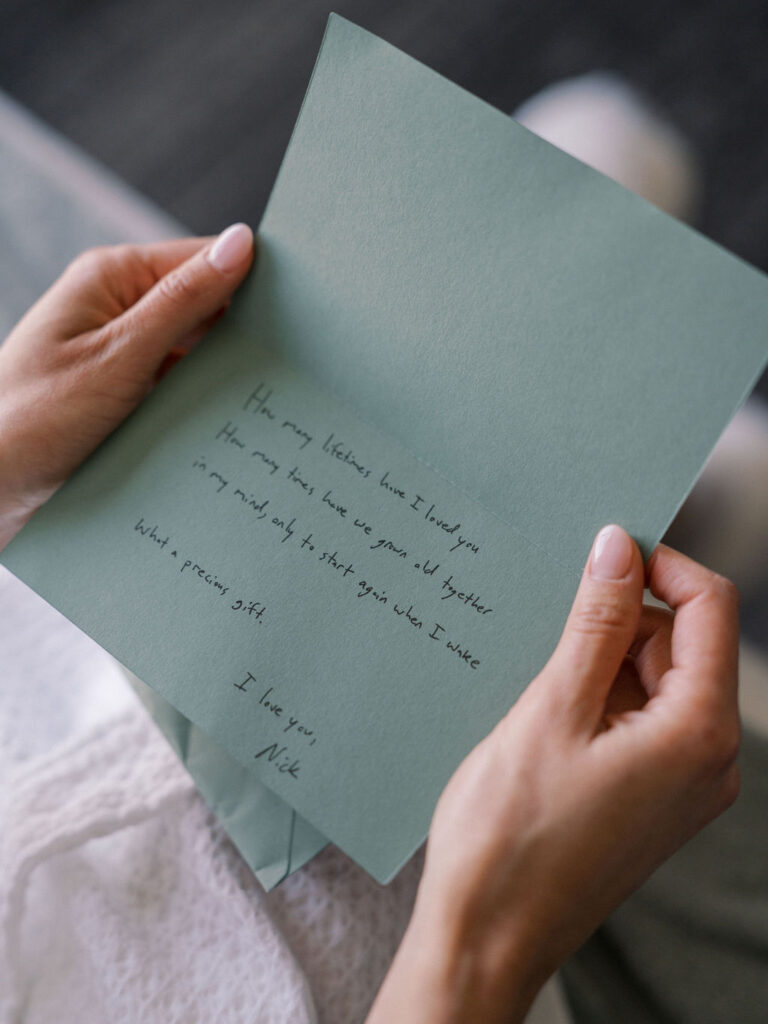 How many lifetimes have I loved you
How many times have we grown old together
in my mind, only to start again when I wake
What a precious gift.
I love you,
Nick